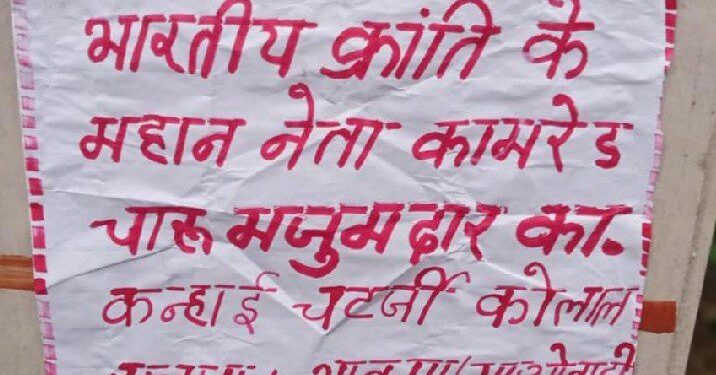 भारतीय क्रांति के
महान नेता कामरेड
चारू मजुमदार का.
कन्हाई चटर्जी कोलाल